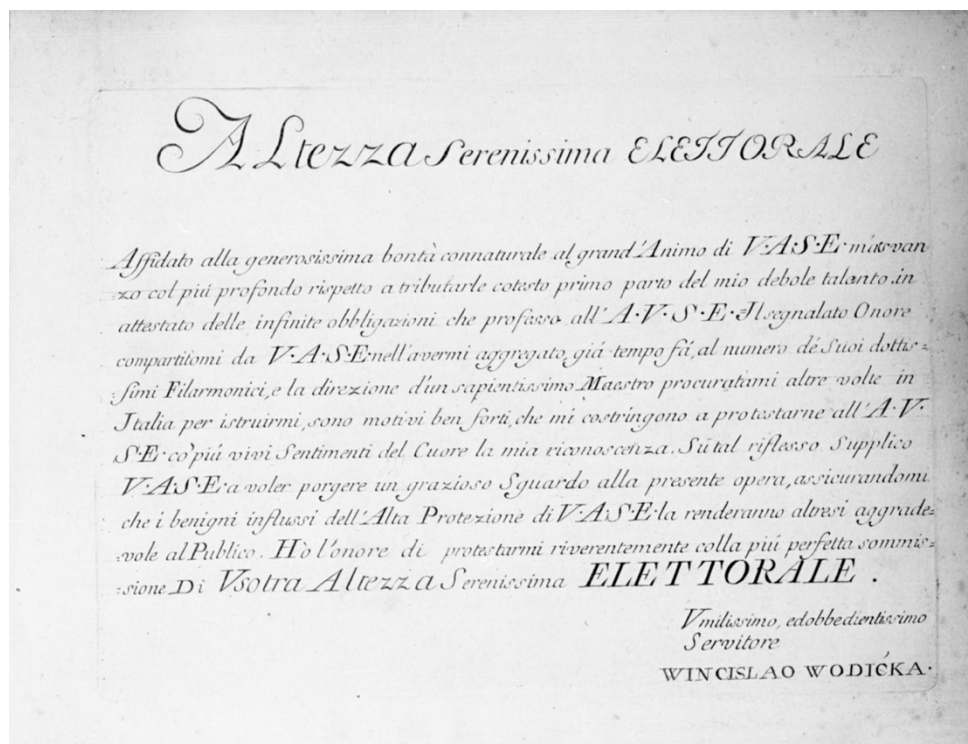 ALtezza Serenissima ELETTORALE
Affidato alla generosissima bontà connaturale al grand'Animo di V·A·S·E· m'avan
zo col piú profondo rispetto a tributarle cotesto primo parto del mio debole talento in
attestato delle infinite obbligazioni che professo all'A·V·S·E· Il segnalato Onore
compartitomi da V·A·S·E· nell'avermi aggregato, giá tempo fá, al numero dé Suoi dottis=
=simi Filarmonici, e la direzione d'un sapientissimo Maestro procuratami altre volte in
Italia per istruirmi, sono motivi ben forti, che mi costringono a protestarne all'A·V·
S·E· co' piú vivi Sentimenti del Cuore la mia riconoscenza. Sú tal riflesso Supplico
V·A·S·E· a voler porgere un grazioso Sguardo alla presente opera, assicurandomi
che i benigni influssi dell'Alta Protezione di V·A·S·E· la renderanno altresi aggrade=
=vole al Publico. Hò l'onore di protestarmi riverentemente colla piú perfetta sommis=
=sione Di Vsotra Altezza Serenissima ELETTORALE.
Vmilissimo, ed obbedientissimo
Servitore
WINCISLAO WODIĆKA·